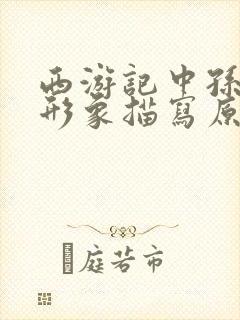 西游記中孫
形象描寫原
門庭若市